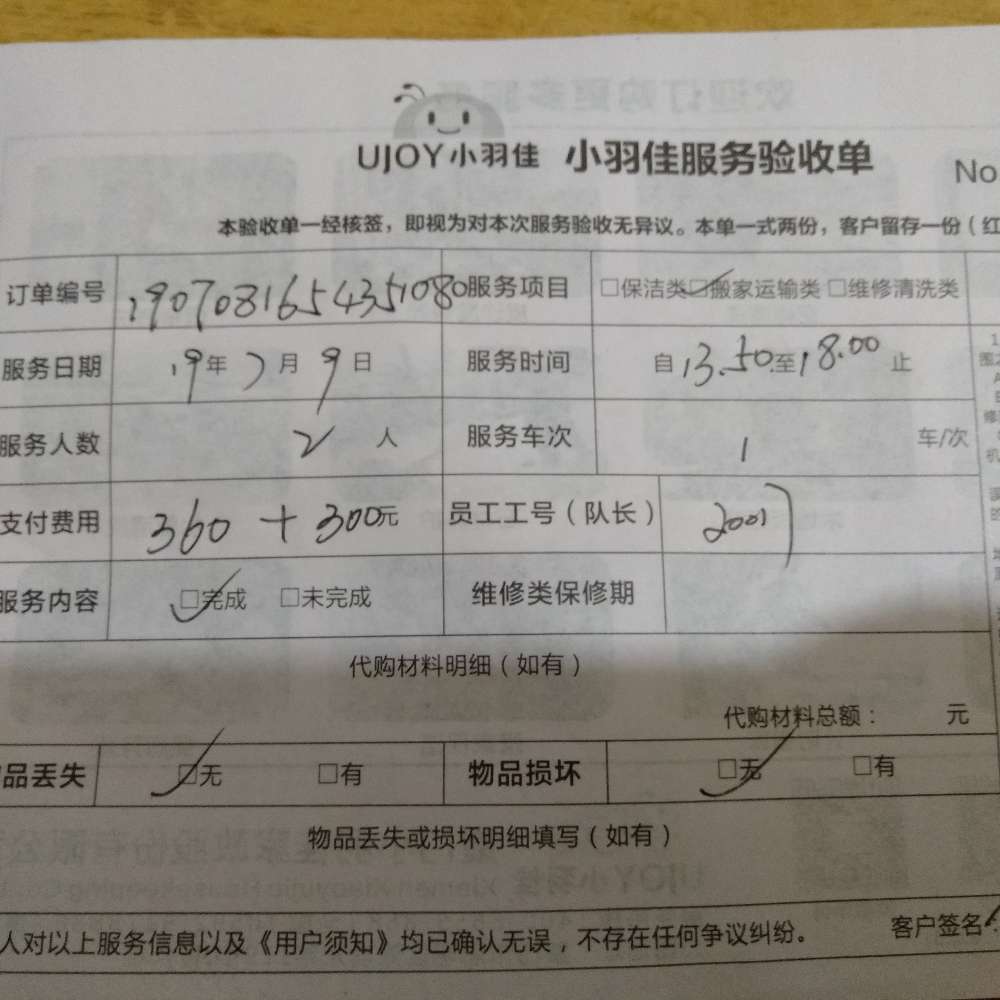 UJOY小羽佳 小羽佳服务验收单
No
本验收单一经核签，即视为对本次服务验收无异议。本单一式两份，客户留存一份（红
订单编号 1907081654351080 服务项目 □保洁类☑搬家运输类□维修清洗类
服务日期 19年7月9日 服务时间 自13.50至18.00止
服务人数 2人 服务车次 1 车/次
支付费用 360+300元 员工工号（队长） 2001
服务内容 ☑完成 □未完成 维修类保修期
代购材料明细（如有）
代购材料总额： 元
品丢失 ☑无 □有 物品损坏 ☑无 □有
物品丢失或损坏明细填写（如有）
人对以上服务信息以及《用户须知》均已确认无误，不存在任何争议纠纷。 客户签名